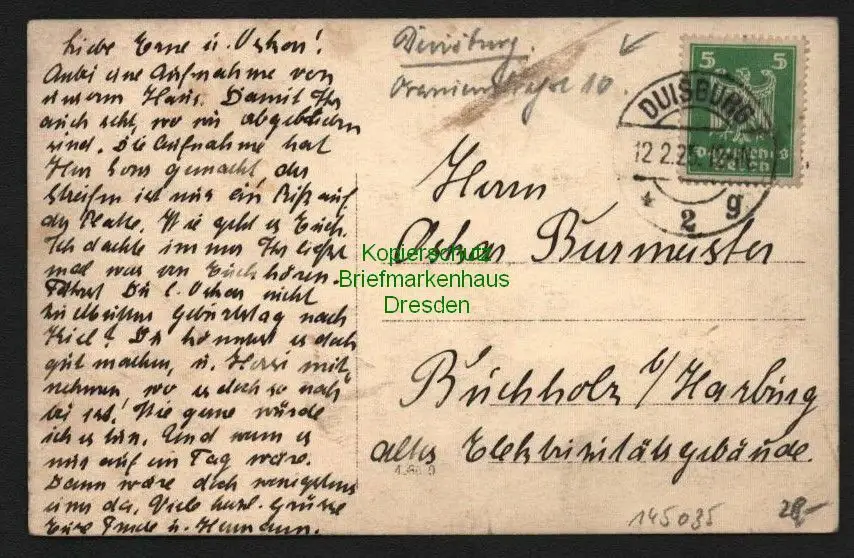 Liebe Erne u. Oskar!
Anbei eine Aufnahme von
unserm Haus. Damit Ihr
auch seht, wo wir abgeblieben
sind. Die Aufnahme hat
Herr gemacht, der
Streifen ist nur ein Riß auf
der Platte. Wie geht es Euch.
Ich dachte immer Ihr ließet
mal was von Euch hören.
Fährst Du l. Oskar nicht
Geburtstag nach
Kiel? Du könntest es doch
gut machen, u. mit,,
nehmen, wo es doch so nah
bei ist! Wie gerne würde
ich es tun. Und wenn es
nur auf ein Tag wäre.
Dann wäre doch wenigstens
einer da. Viele herzl. Grüsse
Eure u. Hermann.
Duisburg.
Oranienstraße 10.
5 5
Deutsches
Reich
DUISBURG
12 2.25
* 2 g
Herrn
Oskar Burmeister
Buchholz b/Harburg
altes Elektrizitätsgebäude.
Kopierschutz
Briefmarkenhaus
Dresden
145035
28,-